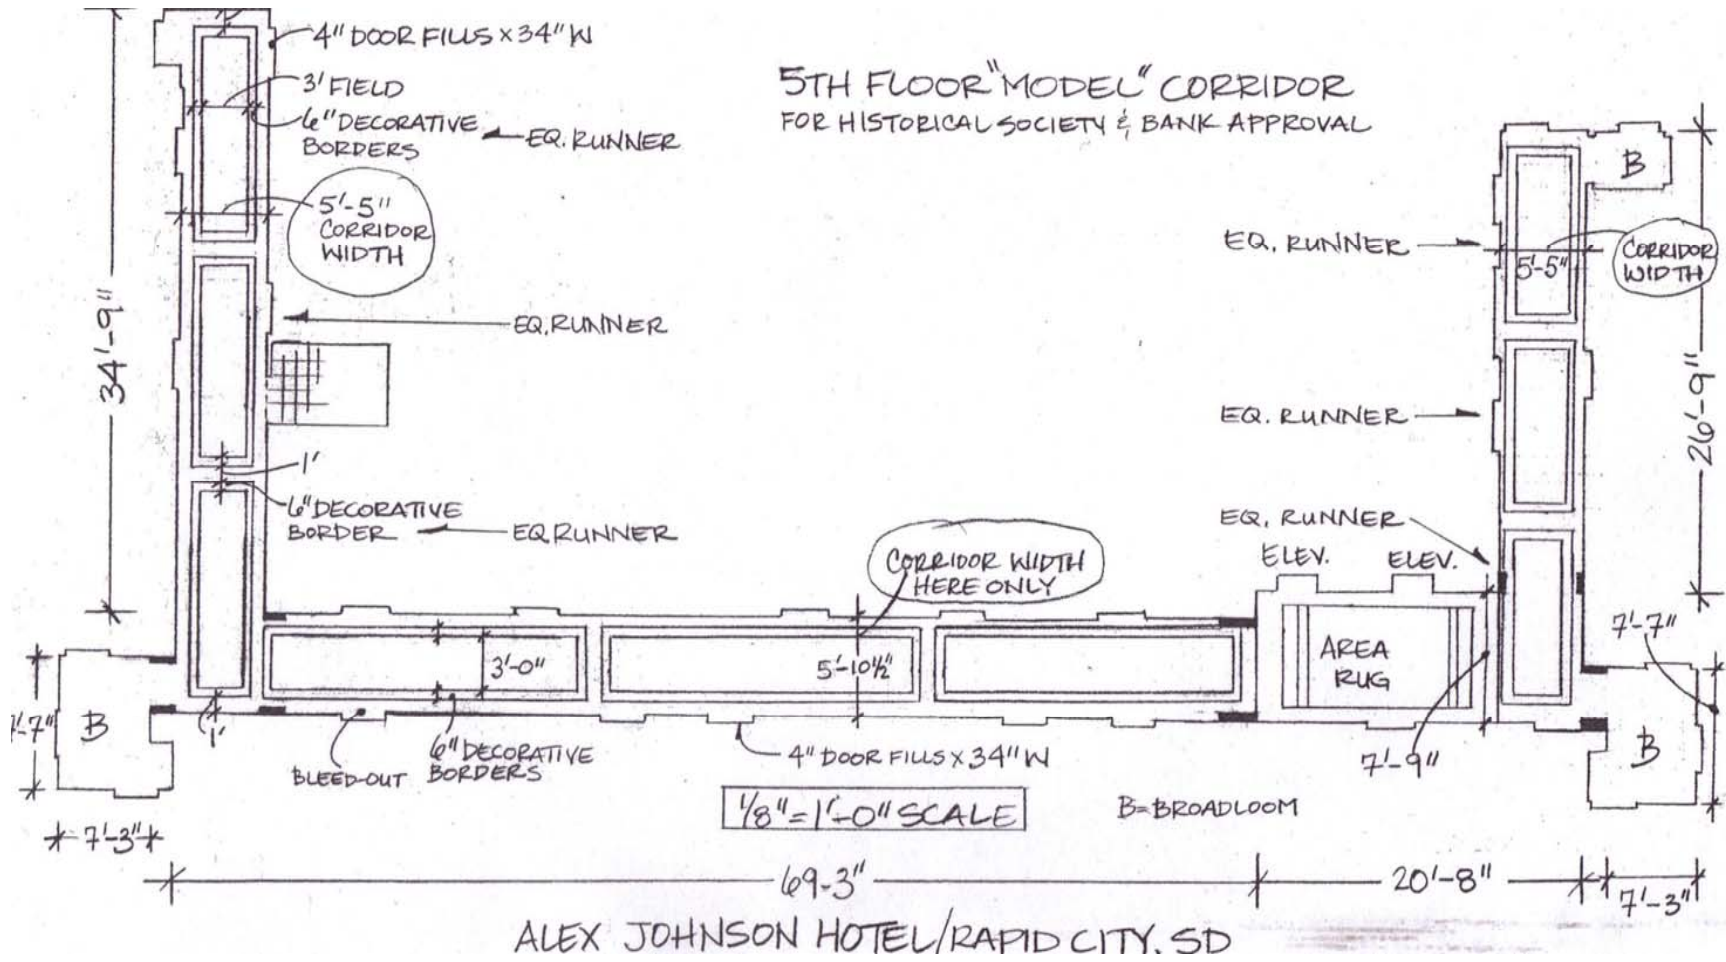 4" DOOR FILLS x 34" W
3' FIELD
6" DECORATIVE
BORDERS
EQ. RUNNER
5'-5"
CORRIDOR
WIDTH
34'-9"
EQ. RUNNER
1'
6" DECORATIVE
BORDER
EQ. RUNNER
5TH FLOOR "MODEL" CORRIDOR
FOR HISTORICAL SOCIETY & BANK APPROVAL
B
EQ. RUNNER
5'-5"
CORRIDOR
WIDTH
EQ. RUNNER
26'-9"
EQ. RUNNER
ELEV. ELEV.
CORRIDOR WIDTH
HERE ONLY
7'-7"
3'-0"
5'-10½"
AREA
RUG
B
1'
B
BLEED-OUT
6" DECORATIVE
BORDERS
4" DOOR FILLS x 34" W
7'-9"
1/8" = 1'-0" SCALE
B=BROADLOOM
7'-3"
69-3"
20'-8"
7'-3"
ALEX JOHNSON HOTEL/RAPID CITY, SD